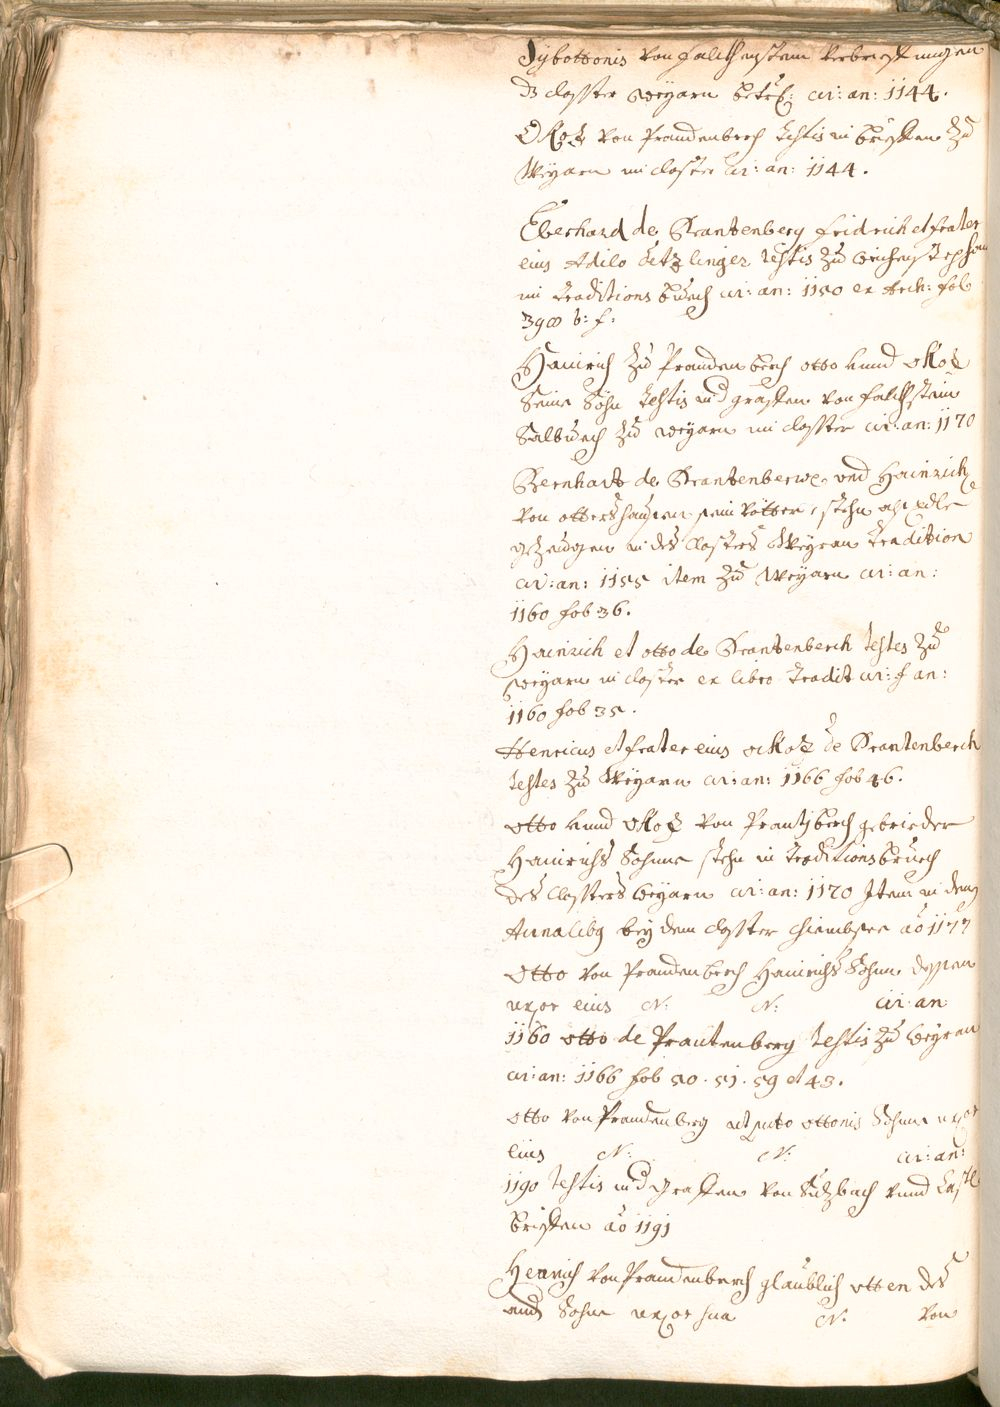 Sybottonis von Falkhenstein
dz closter Weyarn betref: cir: an: 1144.
Okoz von Prandenberch testis in brieffen zu
Weyarn im closter cir: an: 1144.
Eberhard de Brantenberg Fridrich et frater
eius Adilo testis zu Weichenstephan
im traditions buech cir: an: 1150 ex Arch: fol
398 b: f:
Hainrich zu Prandenberch Otto vnnd Okoz
Seine Söhn testis in d graffen von Falkhstein
Salbuech zu Weyarn im closter cir: an: 1170
Bernhart de Brantenberwe vnd Hainrich
von Ottershausen sein vötter, stehn als edle
gezeugen in des closters Weyran tradition
cir: an: 1155 item zu Weyarn cir: an:
1160 fol 36.
Hainrich et Otto de Brantenberch testes zu
Weyarn in closter ex libro tradit cir: f an:
1160 fol 35.
Henricus et frater eius ockoz de Brantenberch
testes zu Weyarn cir: an: 1166 fol 46.
Otto vnnd Okoz von Prantsberch gebrieder
Hainrichs Sohnne stehn in traditionsbuech
des closters Weyarn cir: an: 1170 Item in den
Annalibg bey dem closter Chiembsee ao 1177
Otto von Prandenberch Hainrichs Sohnn dessen
uxor eius N: N: cir: an
1160 otto de Prantenberg testis zu Weyran
cir: an: 1166 fol 50. 51. 59 et 43.
Otto von Prandenberg ut puto ottonis Sohnn uxor
eius N: N: cir: an:
1190 testis in d graffen von Sulzbach vnnd
brieffen ao 1191
Henrich von Prandenberch glaublich otten des
andern Sohne uxor sua N: von